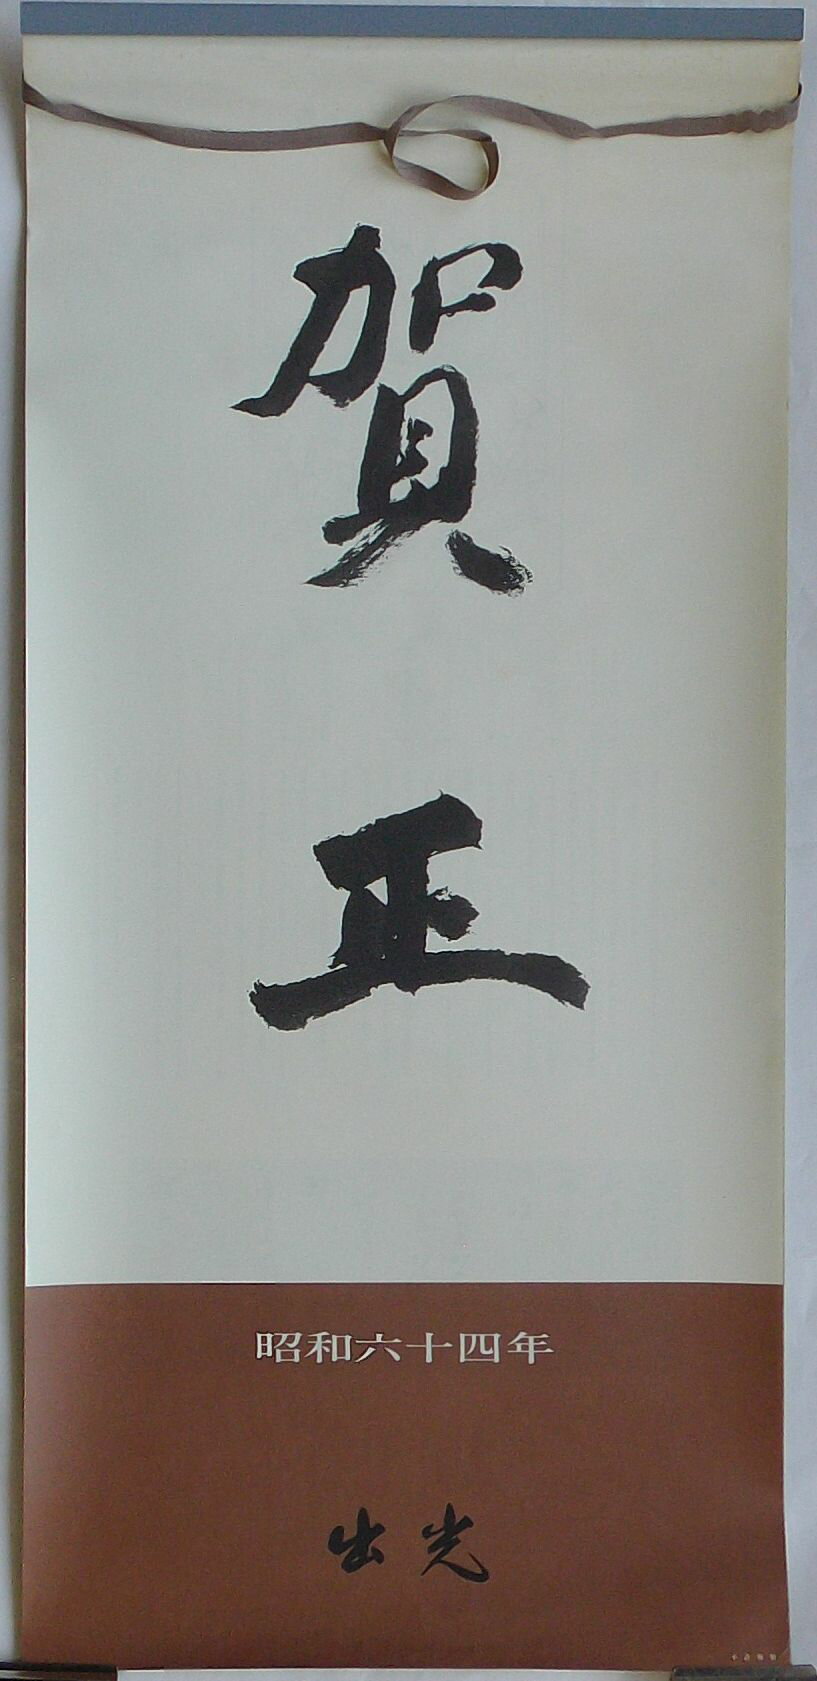 賀
正
昭和六十四年
出光